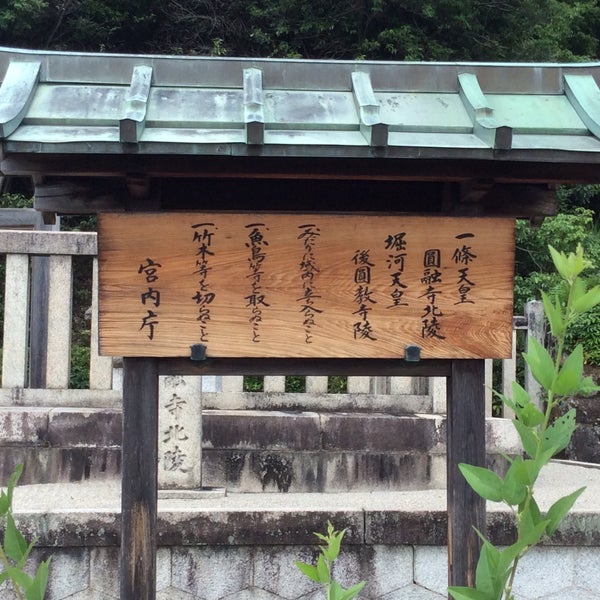 一條天皇
圓融寺北陵
堀河天皇
後圓教寺陵
一、みだりに域内に立入らぬこと
一、魚鳥等を取らぬこと
一、竹木等を切らぬこと
宮内庁
寺北陵